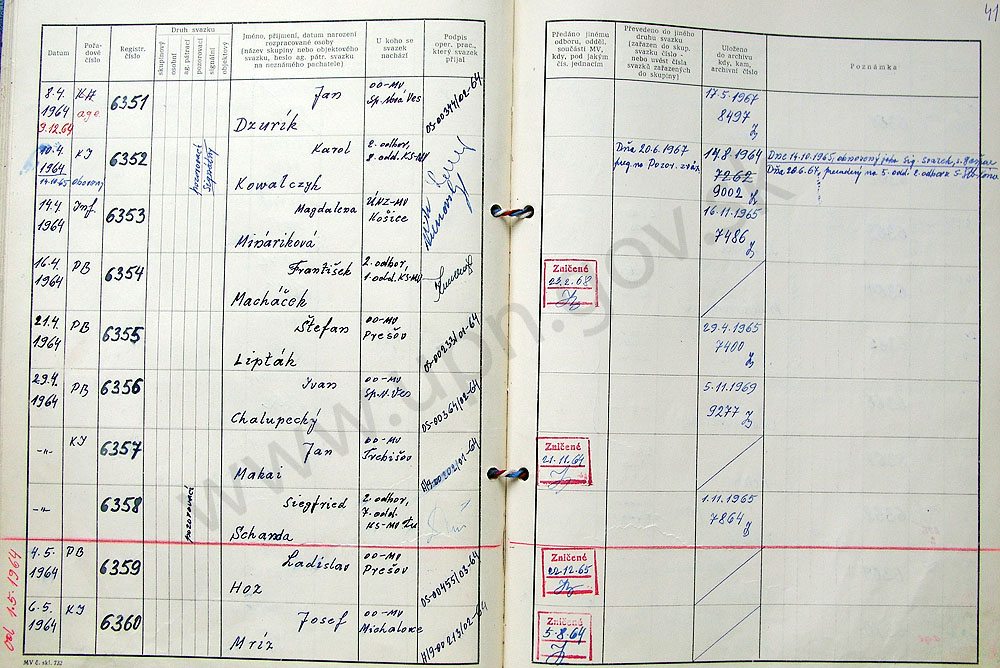 41
Datum
Pořa-
dové
číslo
Registr.
číslo
Druh svazku
skupinový
osobní
ag. pátrací
pozorovací
signální
objektový
Jméno, příjmení, datum narození
rozpracované osoby
(název skupiny nebo objektového
svazku, heslo ag. pátr. svazku
na neznámého pachatele)
U koho se
svazek
nachází
Podpis
oper. prac.,
který svazek
přijal
Předáno jinému
odboru, odděl.
součásti MV,
kdy, pod jakým
čís. jednacím
Převedeno do jiného
druhu svazku
(zařazen do skup.
svazku číslo -
nebo uvést čísla
svazků zařazených
do skupiny)
Uloženo
do archivu
kdy, kam,
archivní číslo
Poznámka
8.4.
1964
9.12.64
age
6351
Jan
Dzurík
OO-MV
Sp. Nová Ves
OS-00344/02-64
17.5.1967
8497
10.4.
1964
14.10.65 obnovený
KI
6352
Karol
Kowalczyh
2. odbor,
KS-MV
Dňa 20.6.1967
14.8.1964
7262
9002
Dňa 14.10.1965, obnovený jako
14.4.
1964
Inf.
6353
Magdalena
Mináriková
ÚNZ-MV
Košice
16.11.1965
7486
16.4.
1964
PB
6354
František
Macháček
2. odbor,
1. odd. KS-MV
Zničené
23.2.68
21.4.
1964
PB
6355
Štefan
Lipták
OO-MV
Prešov
OS-00233/01-64
29.4.1965
7400
29.4.
1964
PB
6356
Ivan
Chalupecký
OO-MV
Sp.N.Ves
OS-00364/02-64
5.11.1969
9277
-"-
KI
6357
Jan
Makai
OO-MV
Trebišov
Zničené
21.11.64
-"-
pozorovací
6358
Siegfried
Schanda
2. odbor,
7. odd.
KS-MV
1.11.1965
7864
od 1.5.1964
4.5.
1964
PB
6359
Ladislav
Hoz
OO-MV
Prešov
OS-00455/03-64
Zničené
22.12.65
6.5.
1964
KI
6360
Josef
Mríz
OO-MV
Michalovce
H19-00213/02-64
Zničené
5.8.64
MV č. skl. 732
www.upn.gov.sk